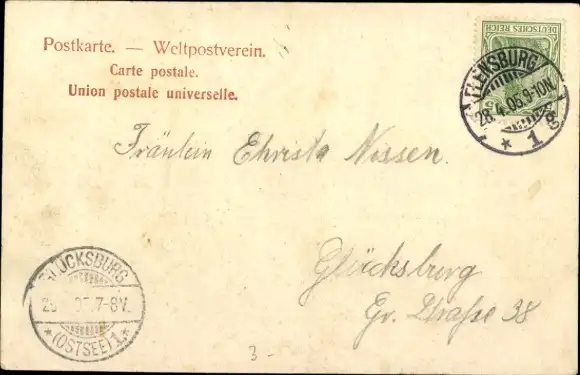 Postkarte. — Weltpostverein.
Carte postale.
Union postale universelle.
DEUTSCHES REICH
FLENSBURG
28.4.05.9-10N.
* 1 g
Fräulein Christa Nissen.
Glücksburg
Gr. Straße 38
GLÜCKSBURG
7-8V.
*(OSTSEE)1.*
3-